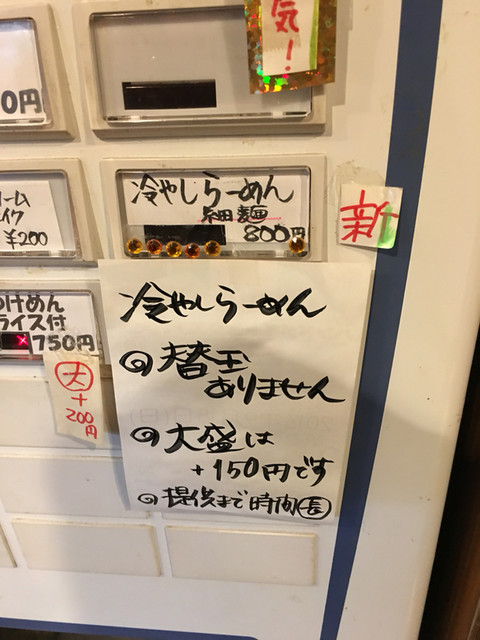 気!
0円
冷やしらーめん
細麺
800円
新
ーム
イク
¥200
つけめん
ライス付
750円
大
+
200円
冷やしらーめん
◎替玉
ありません
◎大盛は
+150円です
◎提供まで時間長